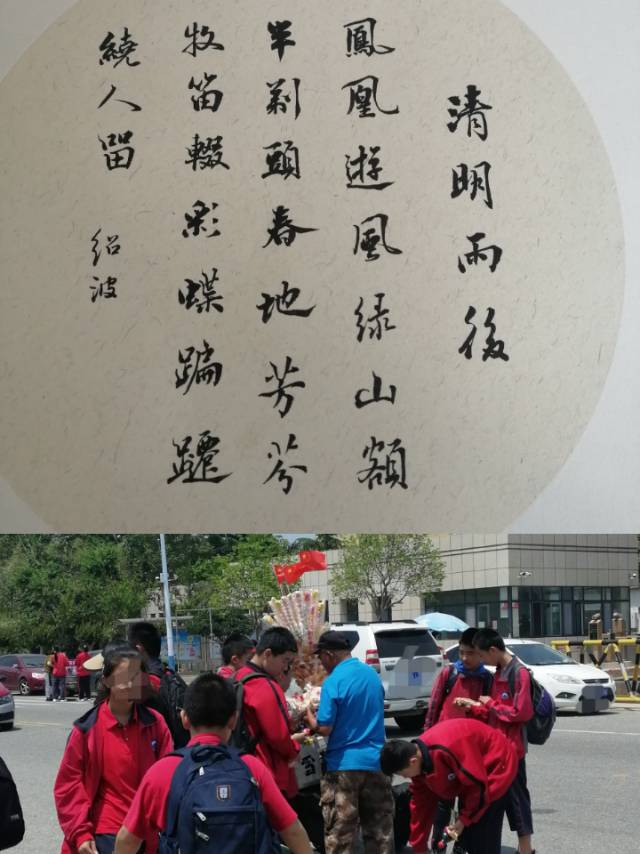 清明雨後
鳳凰遊風绿山額
半剃頭春地芳芬
牧笛輟彩蝶蹁躚
繞人留
绍波